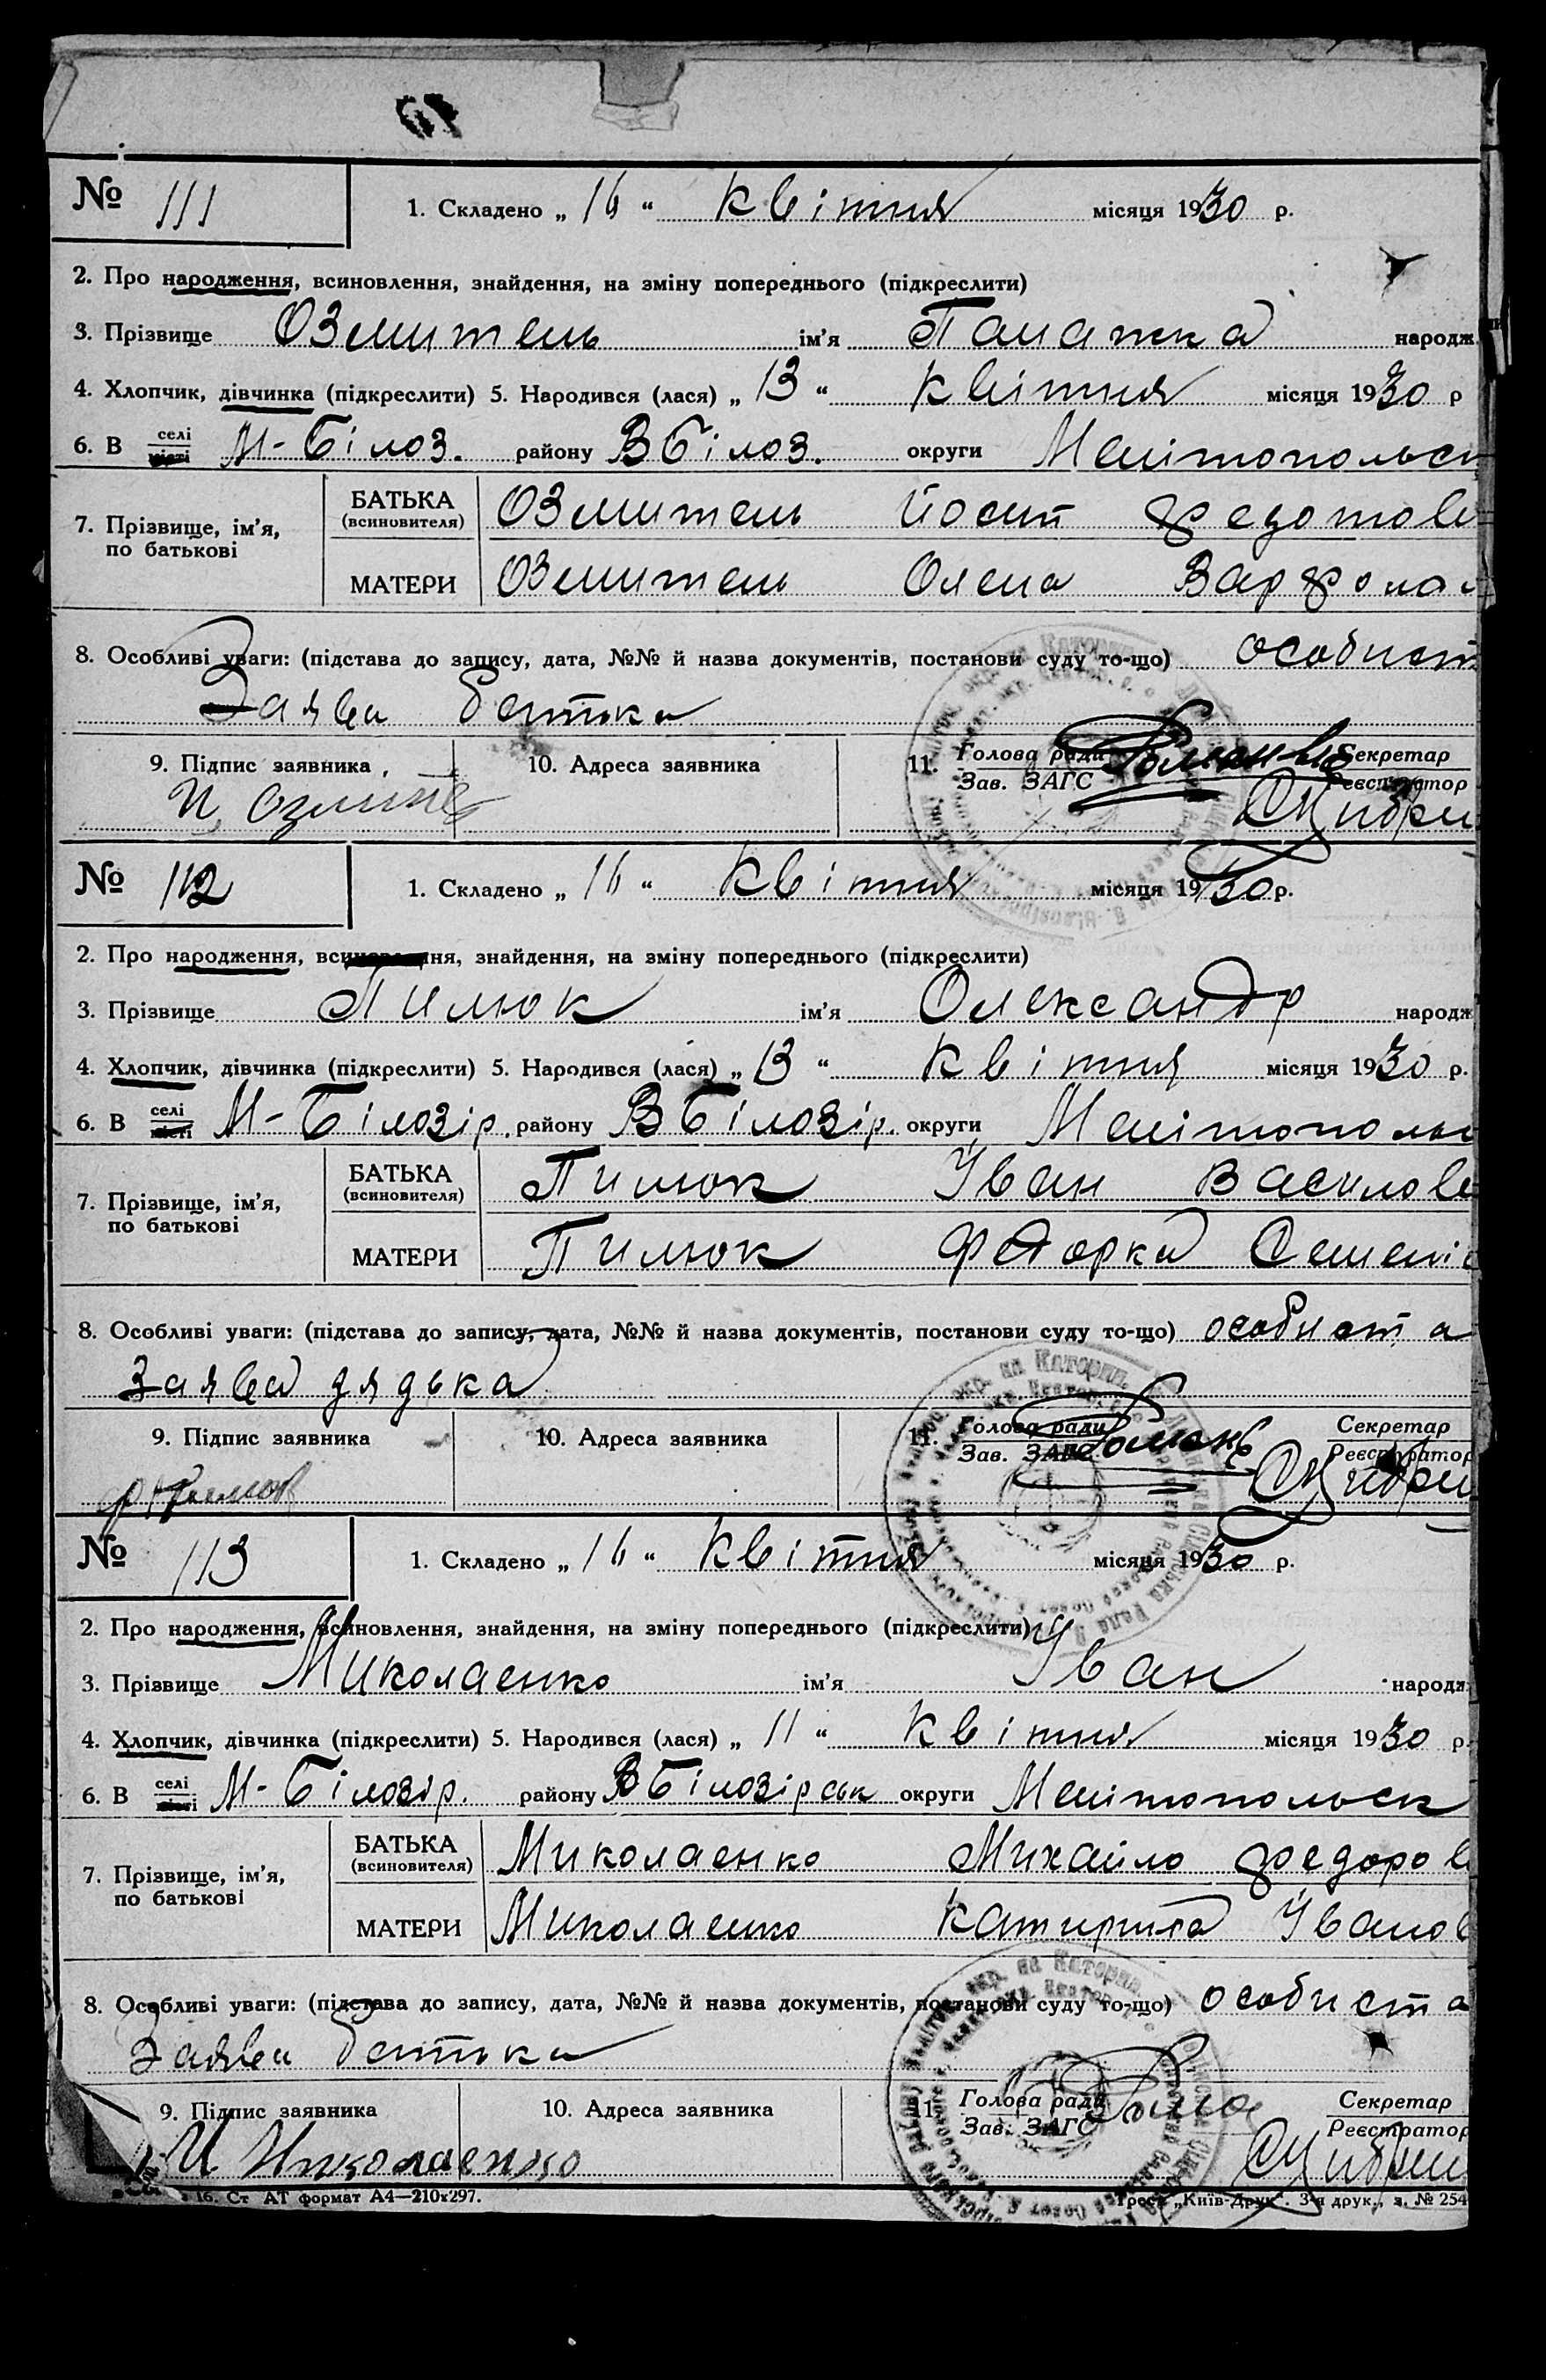 № 111 1. Складено „ 16 “ квітня місяця 1930 р.
2. Про народження, всиновлення, знайдення, на зміну попереднього (підкреслити)
3. Прізвище Озмитель ім’я Палажка народж
4. Хлопчик, дівчинка (підкреслити) 5. Народився (лася) „ 13 “ квітня місяця 1930 р
6. В селі місті М-Білоз. району ВБілоз. округи Мелітопольськ
7. Прізвище, ім’я, по батькові БАТЬКА (всиновителя) Озмитель Йосип Федотов
МАТЕРИ Озмитель Олена Варфолом
8. Особливі уваги: (підстава до запису, дата, №№ й назва документів, постанови суду то-що) особист
Заява батька
9. Підпис заявника 10. Адреса заявника 11. Голова ради Секретар
Зав. ЗАГС Реєстратор
№ 112 1. Складено „ 16 “ квітня місяця 1930 р.
2. Про народження, всиновлення, знайдення, на зміну попереднього (підкреслити)
3. Прізвище Пилюк ім’я Олександр народж
4. Хлопчик, дівчинка (підкреслити) 5. Народився (лася) „ 13 “ квітня місяця 1930 р.
6. В селі місті М-Білозір. району ВБілозір. округи Мелітополь
7. Прізвище, ім’я, по батькові БАТЬКА (всиновителя) Пилюк Іван Василов
МАТЕРИ Пилюк Федорка Семені
8. Особливі уваги: (підстава до запису, дата, №№ й назва документів, постанови суду то-що) особиста
Заява дядька
9. Підпис заявника 10. Адреса заявника 11. Голова ради Секретар
Зав. ЗАГС Реєстратор
№ 113 1. Складено „ 16 “ квітня місяця 1930 р.
2. Про народження, всиновлення, знайдення, на зміну попереднього (підкреслити)
3. Прізвище Миколаенко ім’я Іван народж
4. Хлопчик, дівчинка (підкреслити) 5. Народився (лася) „ 11 “ квітня місяця 1930 р.
6. В селі місті М-Білозір. району ВБілозірськ округи Мелітопольськ
7. Прізвище, ім’я, по батькові БАТЬКА (всиновителя) Миколаенко Михайло Федоров
МАТЕРИ Миколаенко Катирина Іванов
8. Особливі уваги: (підстава до запису, дата, №№ й назва документів, постанови суду то-що) особиста
Заява батька
9. Підпис заявника 10. Адреса заявника 11. Голова ради Секретар
Зав. ЗАГС Реєстратор
16. Ст АТ формат А4—210х297. Трест „Київ-Друк“. 3-я друк., з. № 254